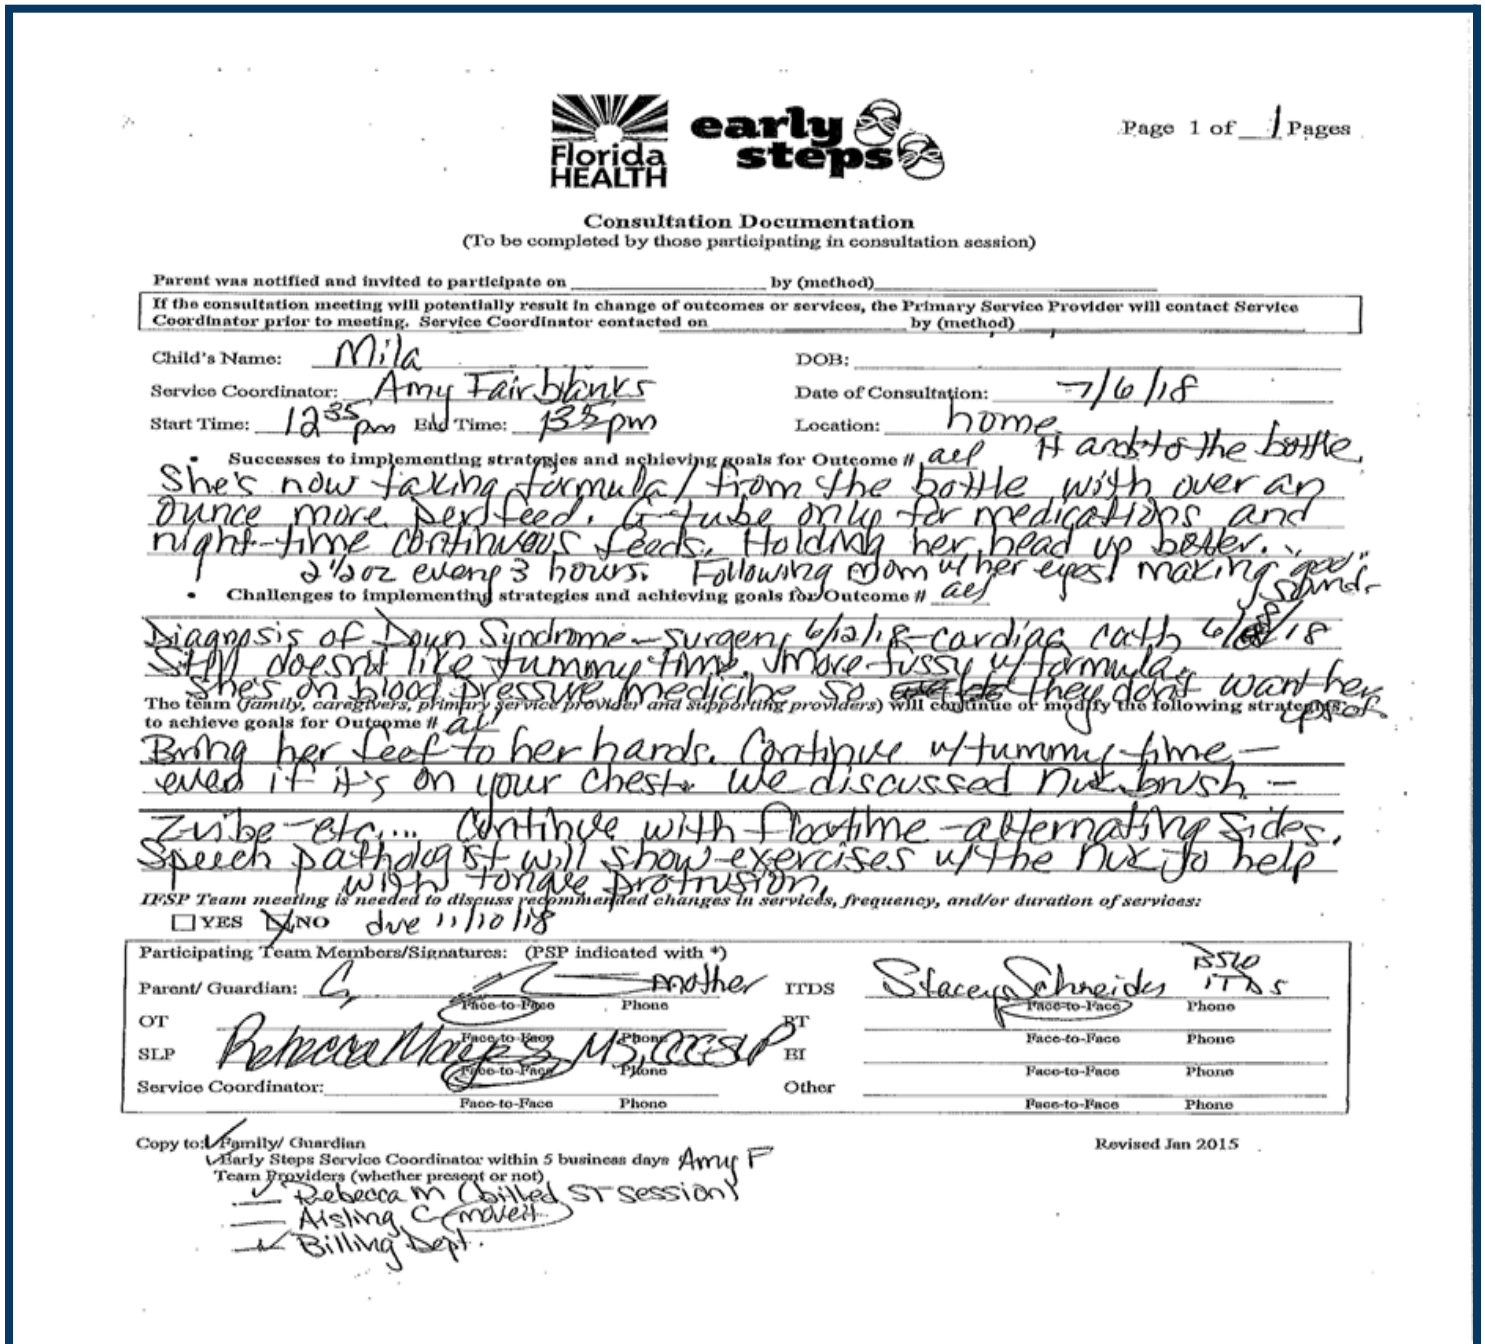 Florida
HEALTH
early
steps
Page 1 of 1 Pages
Consultation Documentation
(To be completed by those participating in consultation session)
Parent was notified and invited to participate on ____ by (method)____
If the consultation meeting will potentially result in change of outcomes or services, the Primary Service Provider will contact Service
Coordinator prior to meeting. Service Coordinator contacted on ____ by (method) ____
Child's Name: Mila DOB:
Service Coordinator: Amy Fairbanks Date of Consultation: 7/6/18
Start Time: 12 35 pm End Time: 135pm Location: home
• Successes to implementing strategies and achieving goals for Outcome # all Hands to the bottle.
She's now taking formula from the bottle with over an
ounce more per feed. G-tube only for medications and
night-time continuous feeds. Holding her head up better.
2 1/2 oz every 3 hours. Following Mom w/her eyes! making "goo"
sounds
• Challenges to implementing strategies and achieving goals for Outcome # all
Diagnosis of Down Syndrome - surgery 6/12/18 - cardiac cath 6/ /18
Still doesn't like tummy time. more fussy w/formula.
She's on blood pressure medicine so they don't want her
upset
The team (family, caregivers, primary service provider and supporting providers) will continue or modify the following strategies
to achieve goals for Outcome # all
Bring her feet to her hands. Continue w/tummy time -
even if it's on your chest. We discussed nuk brush -
z-vibe - etc... Continue with floortime - alternating sides.
Speech pathologist will show exercises w/the nuk to help
with tongue protrusion.
IFSP Team meeting is needed to discuss recommended changes in services, frequency, and/or duration of services:
YES NO due 11/10/18
Participating Team Members/Signatures: (PSP indicated with *)
Parent/ Guardian: C mother ITDS Stacey Schneider BSW ITDS
Face-to-Face Phone Face-to-Face Phone
OT PT
Face-to-Face Phone Face-to-Face Phone
SLP Rebecca MS, CCC SLP BI
Face-to-Face Phone Face-to-Face Phone
Service Coordinator: Other
Face-to-Face Phone Face-to-Face Phone
Copy to: Family/ Guardian Revised Jan 2015
Early Steps Service Coordinator within 5 business days Amy F
Team Providers (whether present or not)
Rebecca M (billed ST session)
Aisling C moved
Billing Dept.